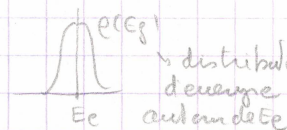 ρ(Eg)
distribu
d'energie
autour de Ee
Ee